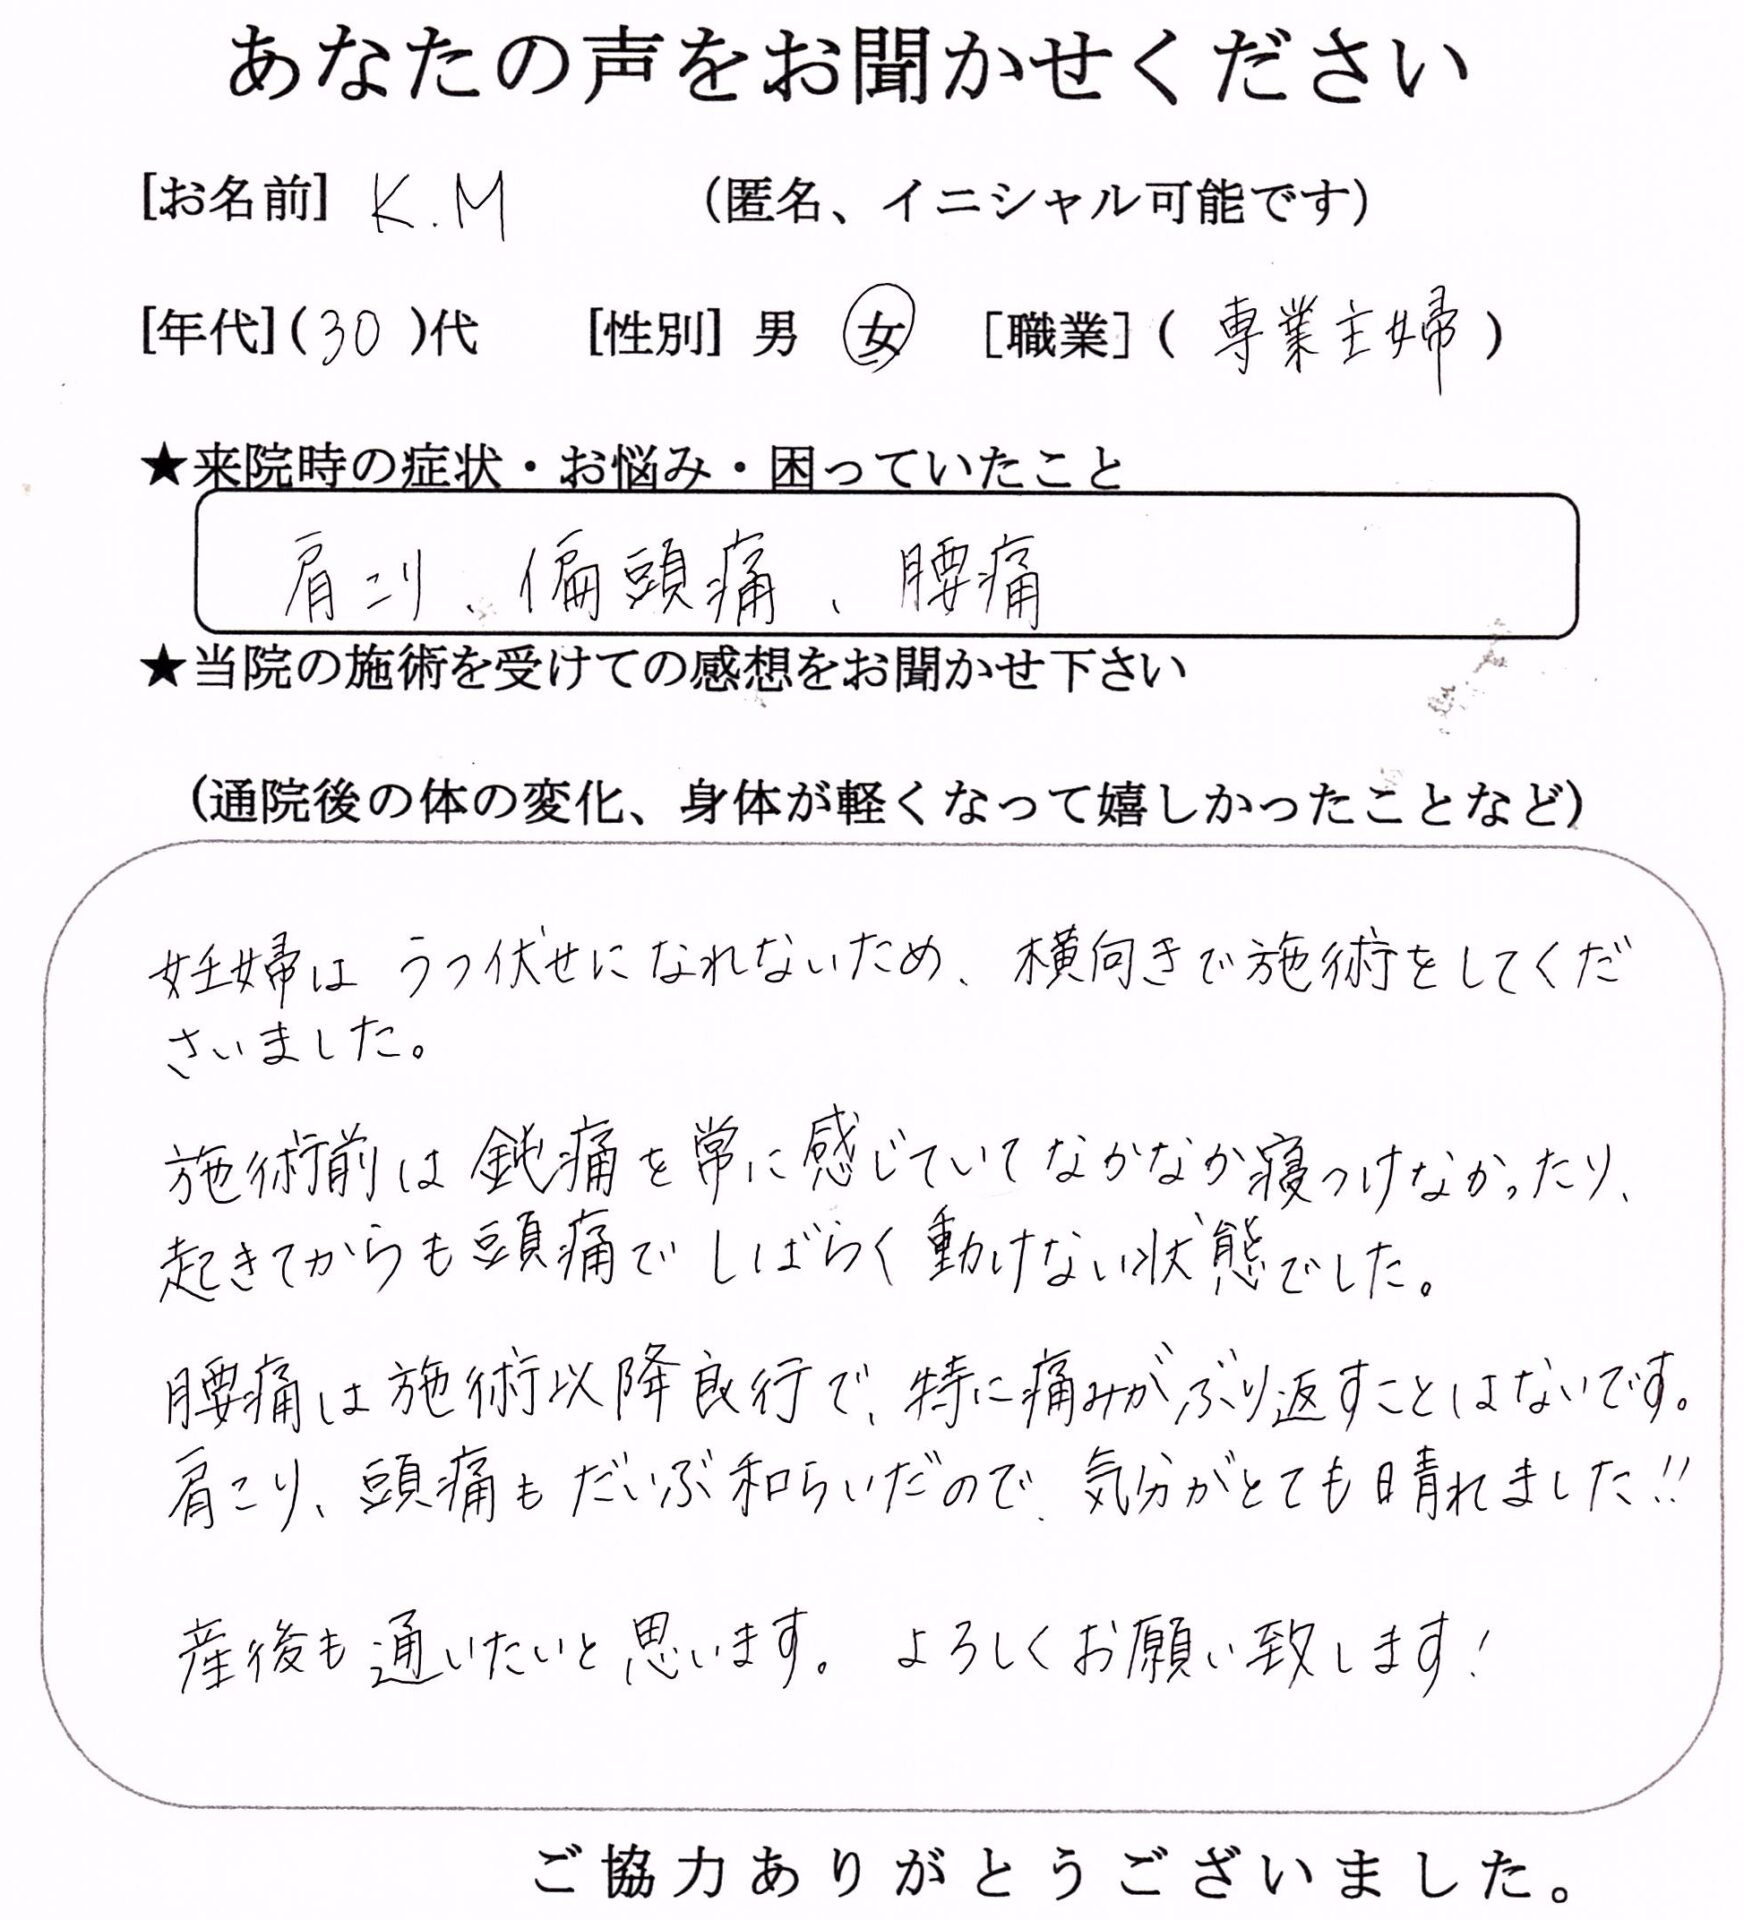 あなたの声をお聞かせください
[お名前] K.M (匿名、イニシャル可能です)
[年代](30)代 [性別] 男 女 [職業](専業主婦)
★来院時の症状・お悩み・困っていたこと
肩こり、偏頭痛、腰痛
★当院の施術を受けての感想をお聞かせ下さい
(通院後の体の変化、身体が軽くなって嬉しかったことなど)
妊婦は うつ伏せになれないため、横向きで施術をしてくだ
さいました。
施術前は鈍痛を常に感じていてなかなか寝つけなかったり、
起きてからも頭痛で しばらく動けない状態でした。
腰痛は施術以降良行で、特に痛みがぶり返すことはないです。
肩こり、頭痛もだいぶ和らいだので、気分がとても晴れました!!
産後も通いたいと思います。 よろしくお願い致します!
ご協力ありがとうございました。